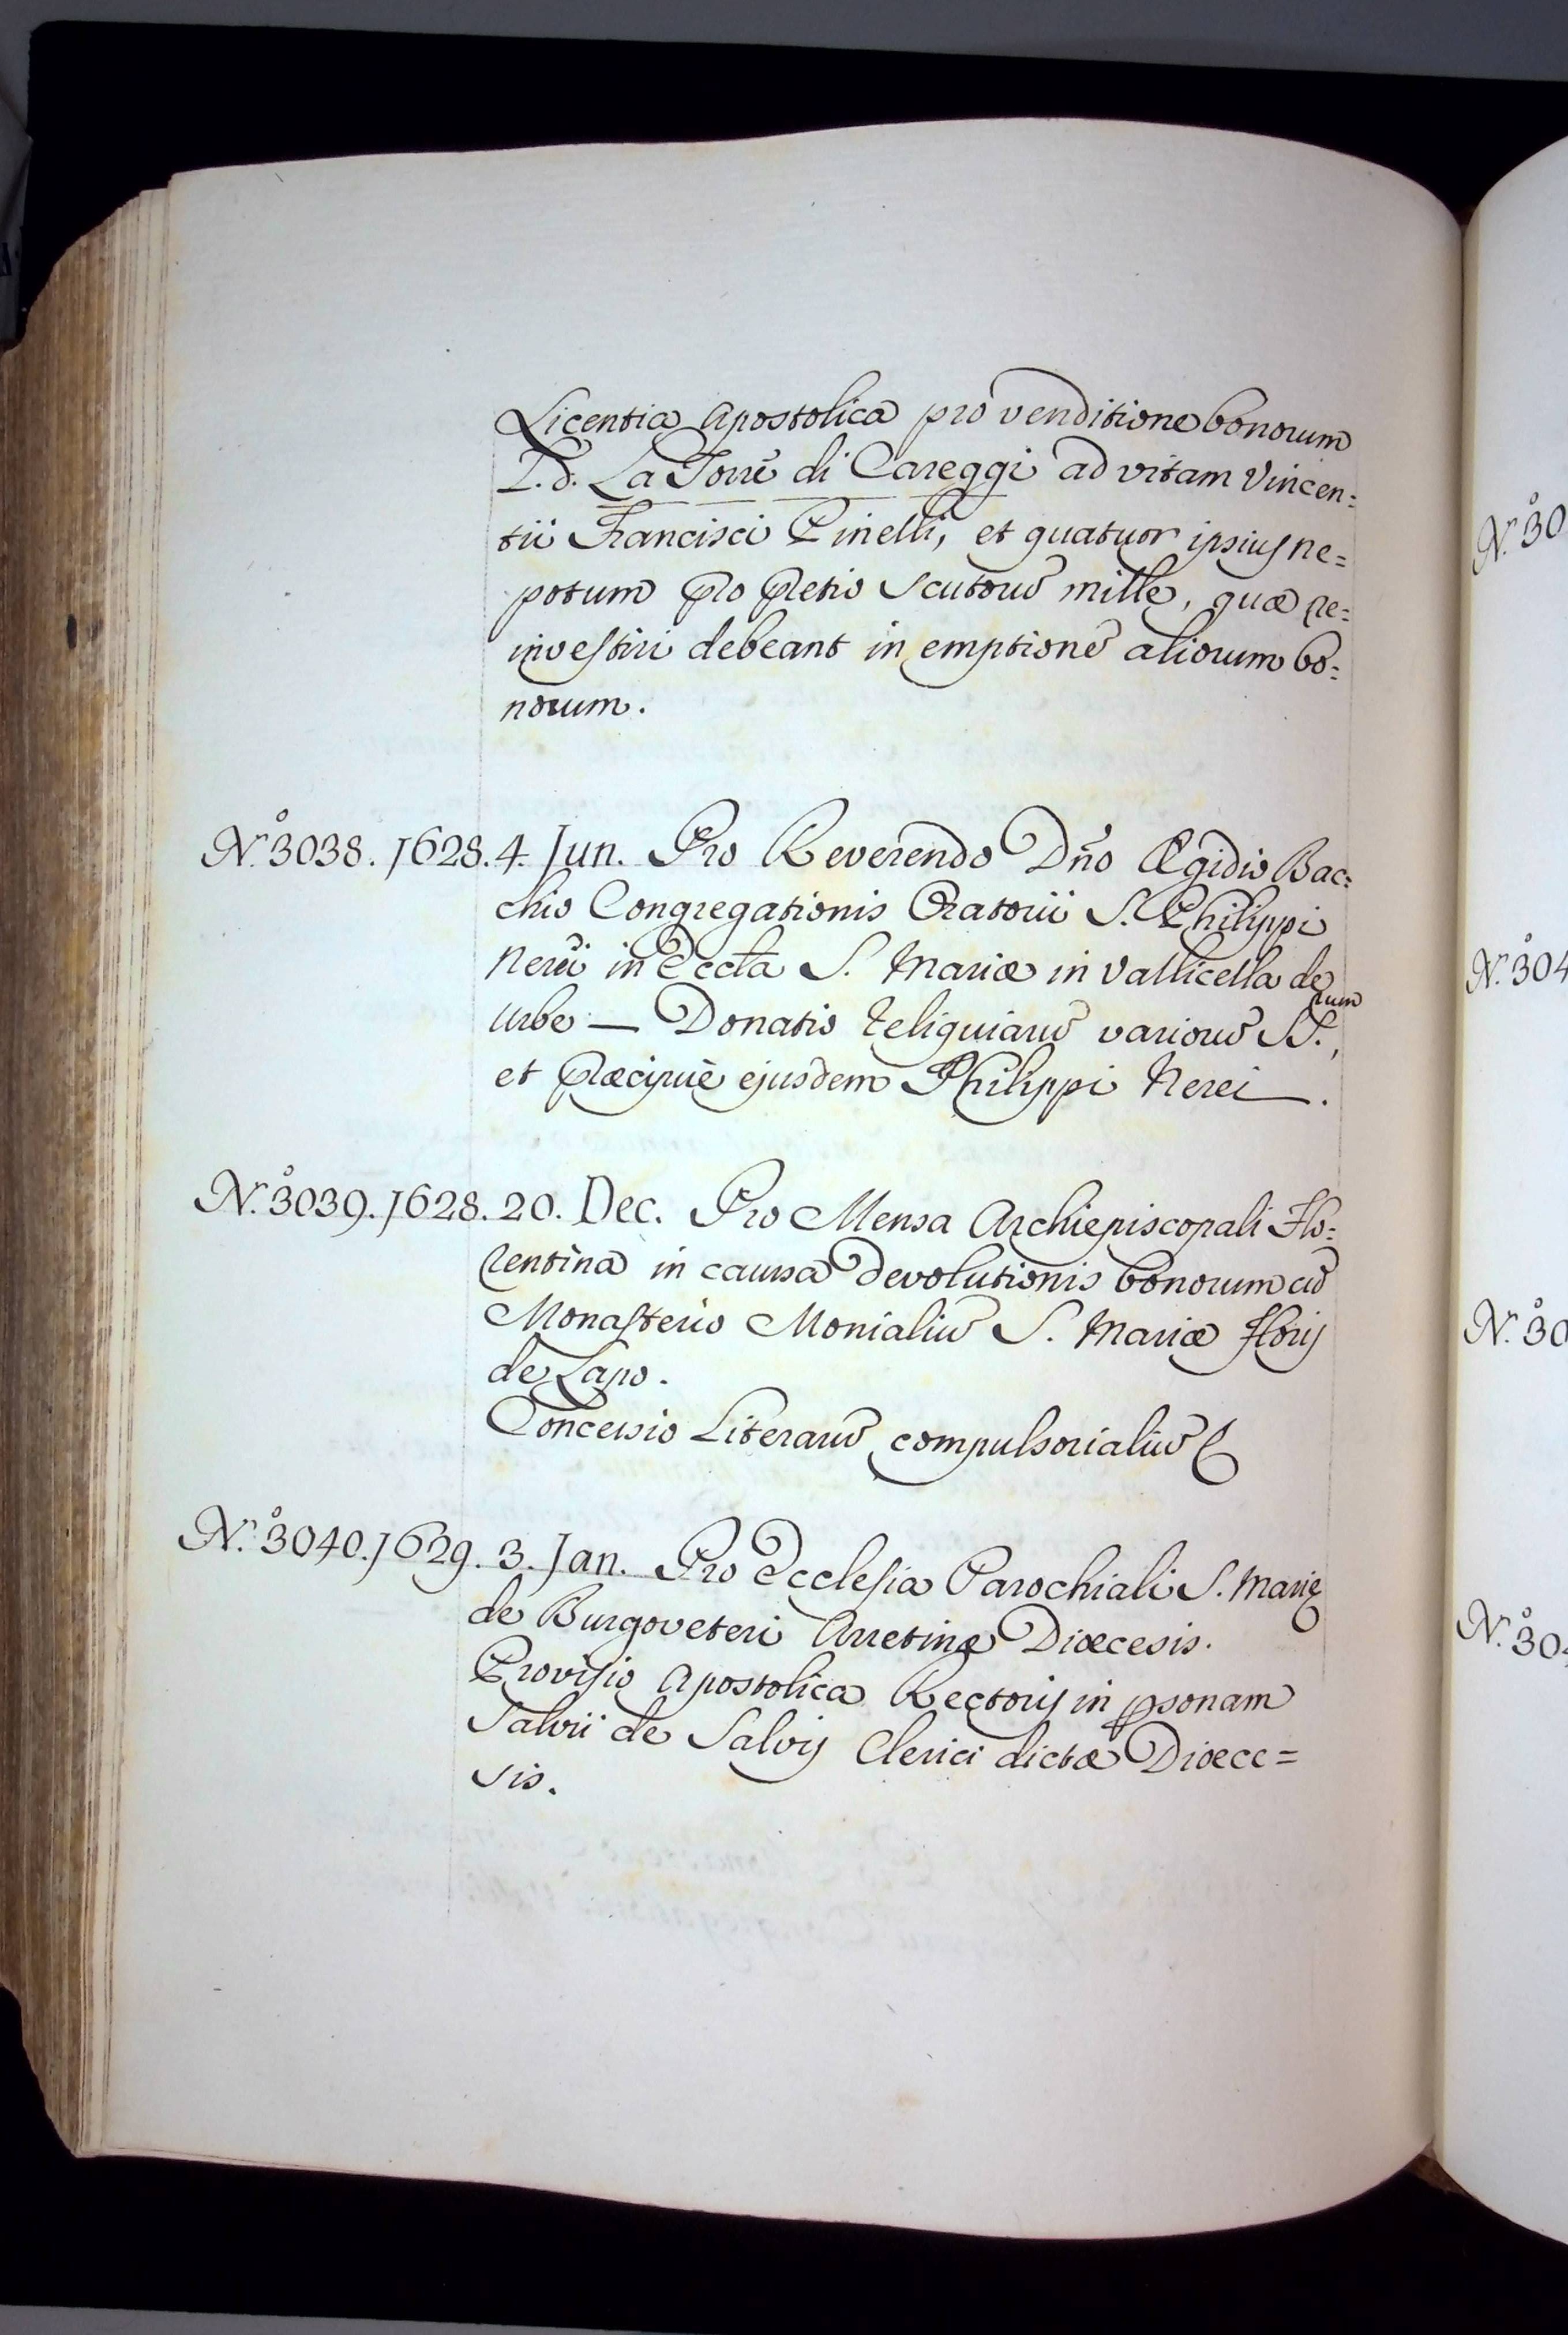 Licentia Apostolica pro venditione bonorum
L.d. La Torre di Careggi ad vitam Vincen=
tii Francisci Pinelli, et quatuor ipsius ne=
potum pro pretio Scutorū mille, quæ re=
investiri debeant in emptionē aliorum bo=
norum.
N.º 3038. 1628. 4. Jun. Pro Reverendo Dño Ægidio Bac=
chio Congregationis Oratorii S. Philippi
Nerei in Eccla S. Mariæ in Vallicella de
Urbe — Donatio Reliquiarū variorū SS.rum,
et præcipuè ejusdem Philippi Nerei.
N.º 3039. 1628. 20. Dec. Pro Mensa Archiepiscopali Flo=
rentina in caussa devolutionis bonorum cū
Monasterio Monialiū S. Mariæ Floris
de Lapo.
Concessio Literarū compulsorialiū
N.º 3040. 1629. 3. Jan. Pro Ecclesia Parochiali S. Marię
de Burgoveteri Arretinæ Diœcesis.
Provisio Apostolica Rectoris in psonam
Salvii de Salvis Clerici dictæ Diœce=
sis.
N.º 30
N.º 304
N.º 30
N.º 304